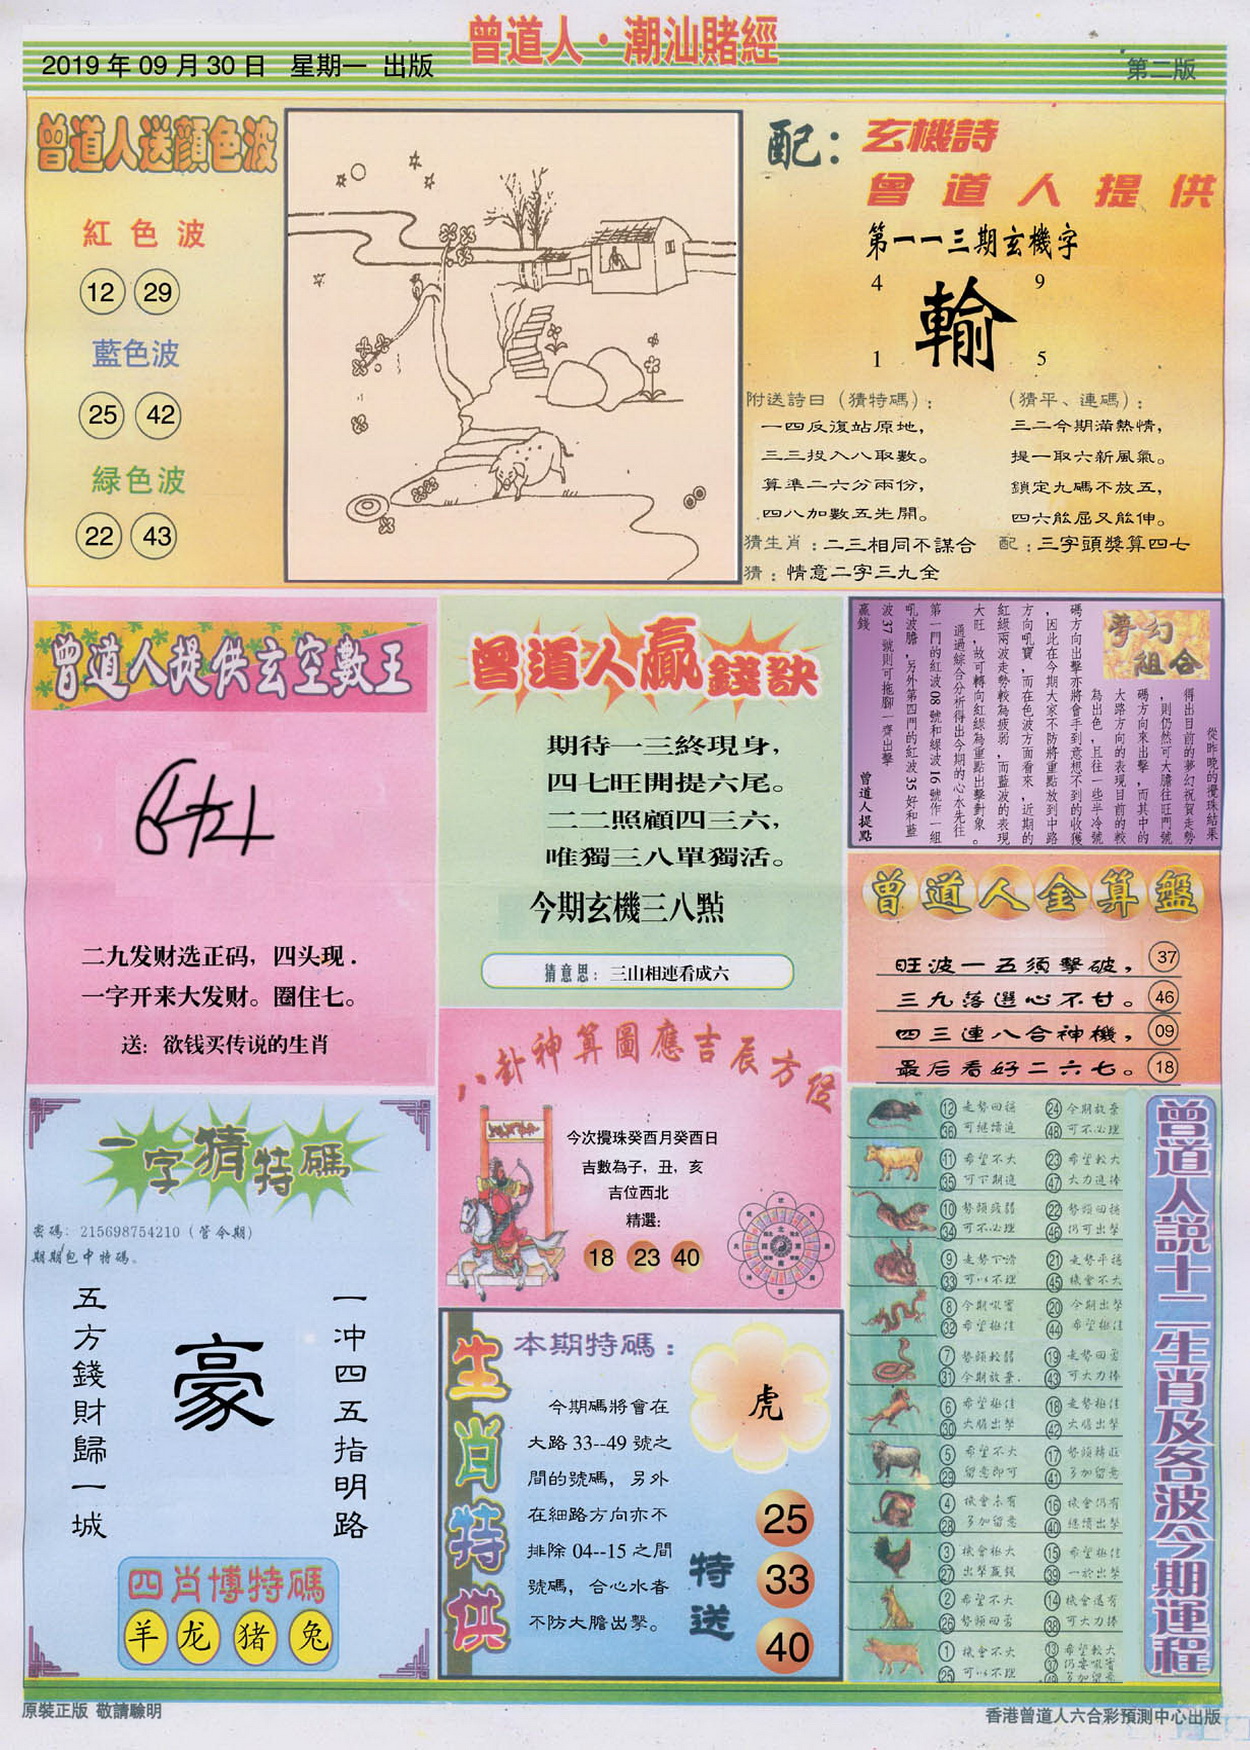 曾道人·潮汕賭經
2019年09月30日 星期一 出版
第二版
曾道人送顏色波
紅色波
12 29
藍色波
25 42
緑色波
22 43
配：玄機詩
曾道人提供
第一一三期玄機字
4 9
輸
1 5
附送詩曰（猜特碼）：
一四反復站原地，
三三投入八取數。
算準二六分兩份，
四八加數五先開。
（猜平、連碼）：
三二今期滿熱情，
提一取六新風氣。
鎖定九碼不放五，
四六能屈又能伸。
猜生肖：二三相同不謀合
配：三字頭獎算四七
猜：情意二字三九全
曾道人提供玄空數王
二九发财选正码，四头现．
一字开来大发财。圈住七。
送：欲钱买传说的生肖
曾道人贏錢訣
期待一三終現身，
四七旺開提六尾。
二二照顧四三六，
唯獨三八單獨活。
今期玄機三八點
猜意思：三山相連看成六
夢幻
組合
從昨晚的攪珠結果
得出目前的夢幻祝賀走勢
，則仍然可大膽往旺門號
碼方向來出擊，而其中的
大路方向的表現目前的較
為出色，且往一些半冷號
碼方向出擊亦將會手到意想不到的收獲
，因此在今期大家不防將重點放到中路
方向吼寶，而在色波方面看來，近期的
紅綠兩波走勢較為疲弱，而藍波的表現
大旺，故可轉向紅綠為重點出擊對象。
通過綜合分析得出今期的心水先往
第一門的紅波08號和綠波16號作一組
吼波膽，另外第四門的紅波35好和藍
波37號則可拖腳一齊出擊
贏錢
曾道人提點
曾道人金算盤
旺波一五須擊破，37
三九落選心不甘。46
四三連八合神機，09
最后看好二六七。18
八卦神算圖應吉辰方位
今次攪珠癸酉月癸酉日
吉數為子，丑，亥
吉位西北
精選：
18 23 40
一字猜特碼
密碼：215698754210（管今期）
期期包中特碼。
一冲四五指明路
豪
五方錢財歸一城
四肖博特碼
羊 龙 猪 兔
生肖特供
本期特碼：
虎
今期碼將會在
大路33--49號之
間的號碼，另外
在細路方向亦不
排除04--15之間
號碼，合心水者
不防大膽出擊。
特送
25
33
40
曾道人説十二生肖及各波今期運程
12 走勢回穩 24 今期放棄
36 可继續追 48 可不必理
11 希望不大 23 希望較大
35 可下期追 47 大力追捧
10 勢頭疲弱 22 勢頭回穩
34 可不必理 46 仍可出擊
9 走勢下滑 21 走勢平穩
33 可以不理 45 機會不大
8 今期吼寶 20 今期出擊
32 希望極佳 44 希望極佳
7 勢頭較弱 19 走勢回勇
31 今期放棄. 43 可大力捧
6 希望極佳 18 走勢極佳
30 大膽出擊 42 大膽出擊
5 希望不大 17 勢頭轉旺
29 留意即可 41 多加留意
4 機會未有 16 機會仍有
28 多加留意 40 继續出擊
3 機會極大 15 希望極佳
27 出擊贏錢 39 一於出擊
2 希望不大 14 機會還有
26 勢頭回勇 38 可大力捧
1 機會不大 13 希望較大
25 可以不理 37 仍要吼寶
49 多加留意
原裝正版 敬請驗明
香港曾道人六合彩預測中心出版